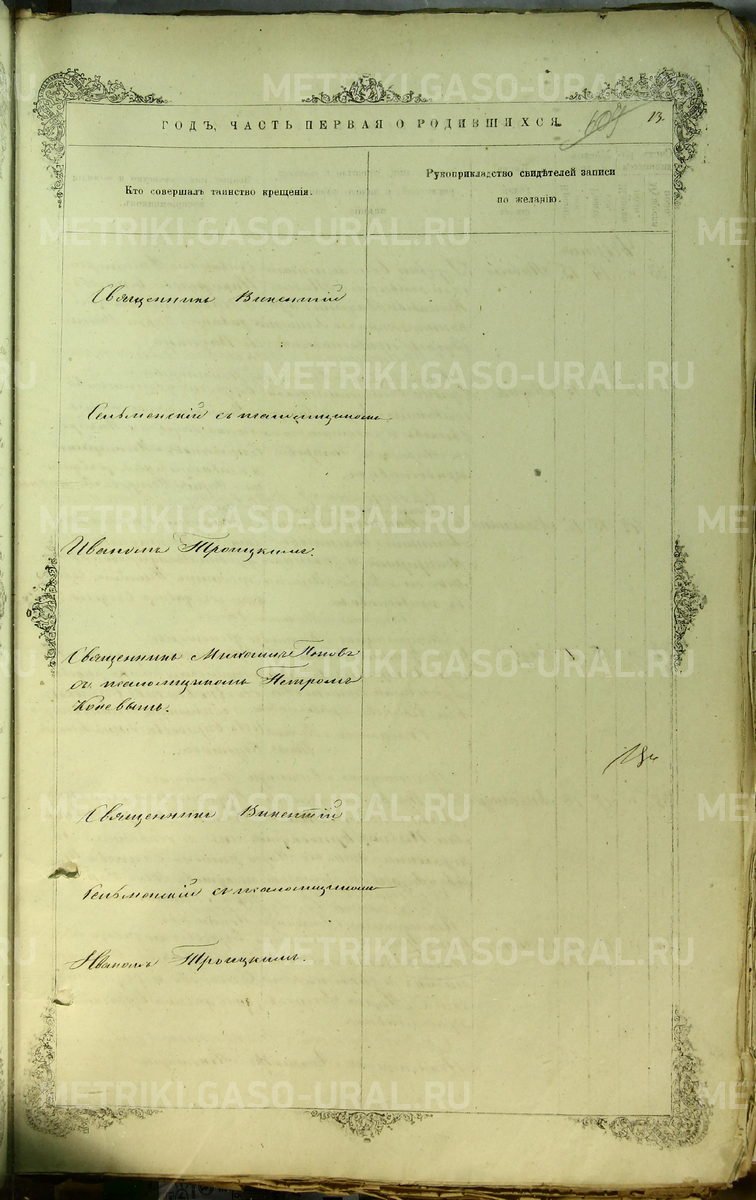 METRIKI.GASO-URAL.RU
ГОДЪ, ЧАСТЬ ПЕРВАЯ О РОДИВШИХСЯ.
13.
Кто совершалъ таинство крещенія.
Рукоприкладство свидѣтелей записи
по желанію.
Священникъ Викентій
Сельменскій съ псаломщикомъ
Иваномъ Троицкимъ.
Священникъ Михаилъ Поповъ
съ псаломщикомъ Петромъ
Священникъ Викентій
Сельменскій съ псаломщикомъ
Иваномъ Троицкимъ.